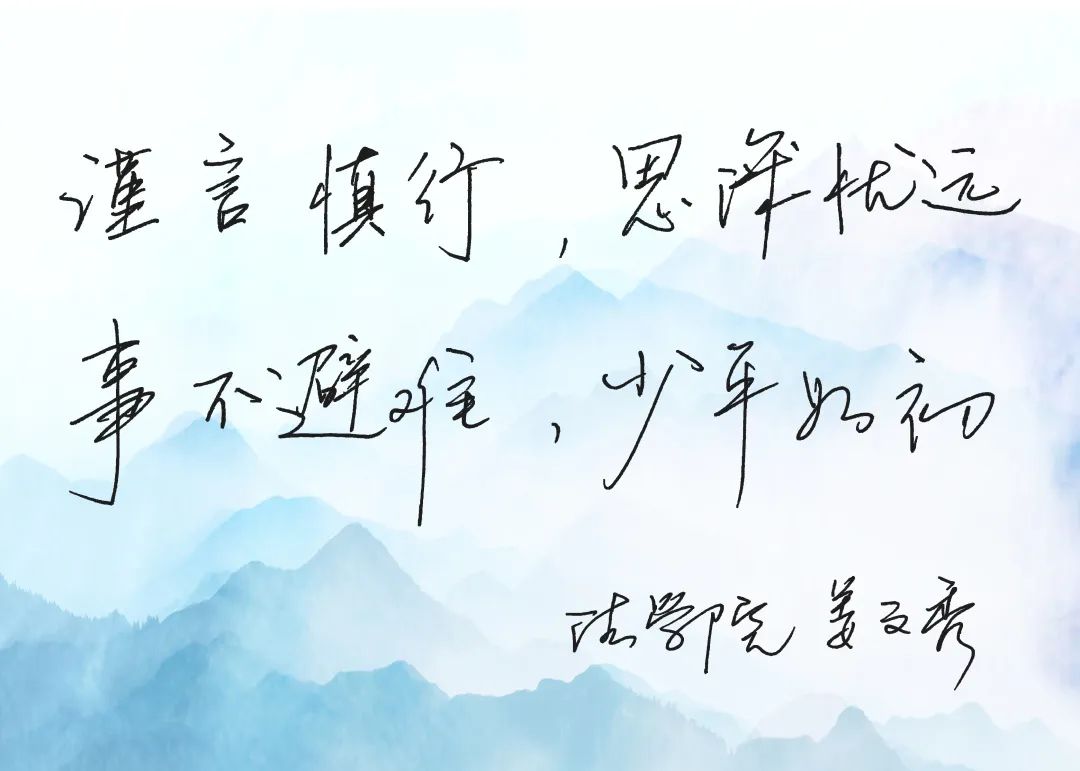 谨言慎行,思深忧远
事不避难,少年如初
法学院 姜文秀